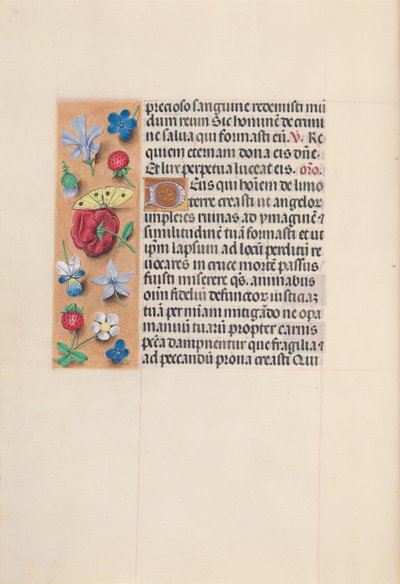 precioso sanguine redemisti mū
dum reum Sic hominē de crimi
ne salua qui formasti eū. V. Re
quiem eternam dona eis dn̄e.
Et lux perpetua luceat eis. oro.
Deus qui hoīem de limo
terre creasti ut angelor
impleres ruinas ad ymaginē ⁊
similitudinē tuā formasti et ut
ipm̄ lapsum ad locū perditū re
uocares in cruce mortē passus
fuisti miserere qs. animabus
om̄ fideliū defunctor iusticiaʒ
tuā per miam mitigādo ne opa
manuū tuarū propter carnis
pctā dampnentur que fragilia ⁊
ad peccandū prona creasti Qui